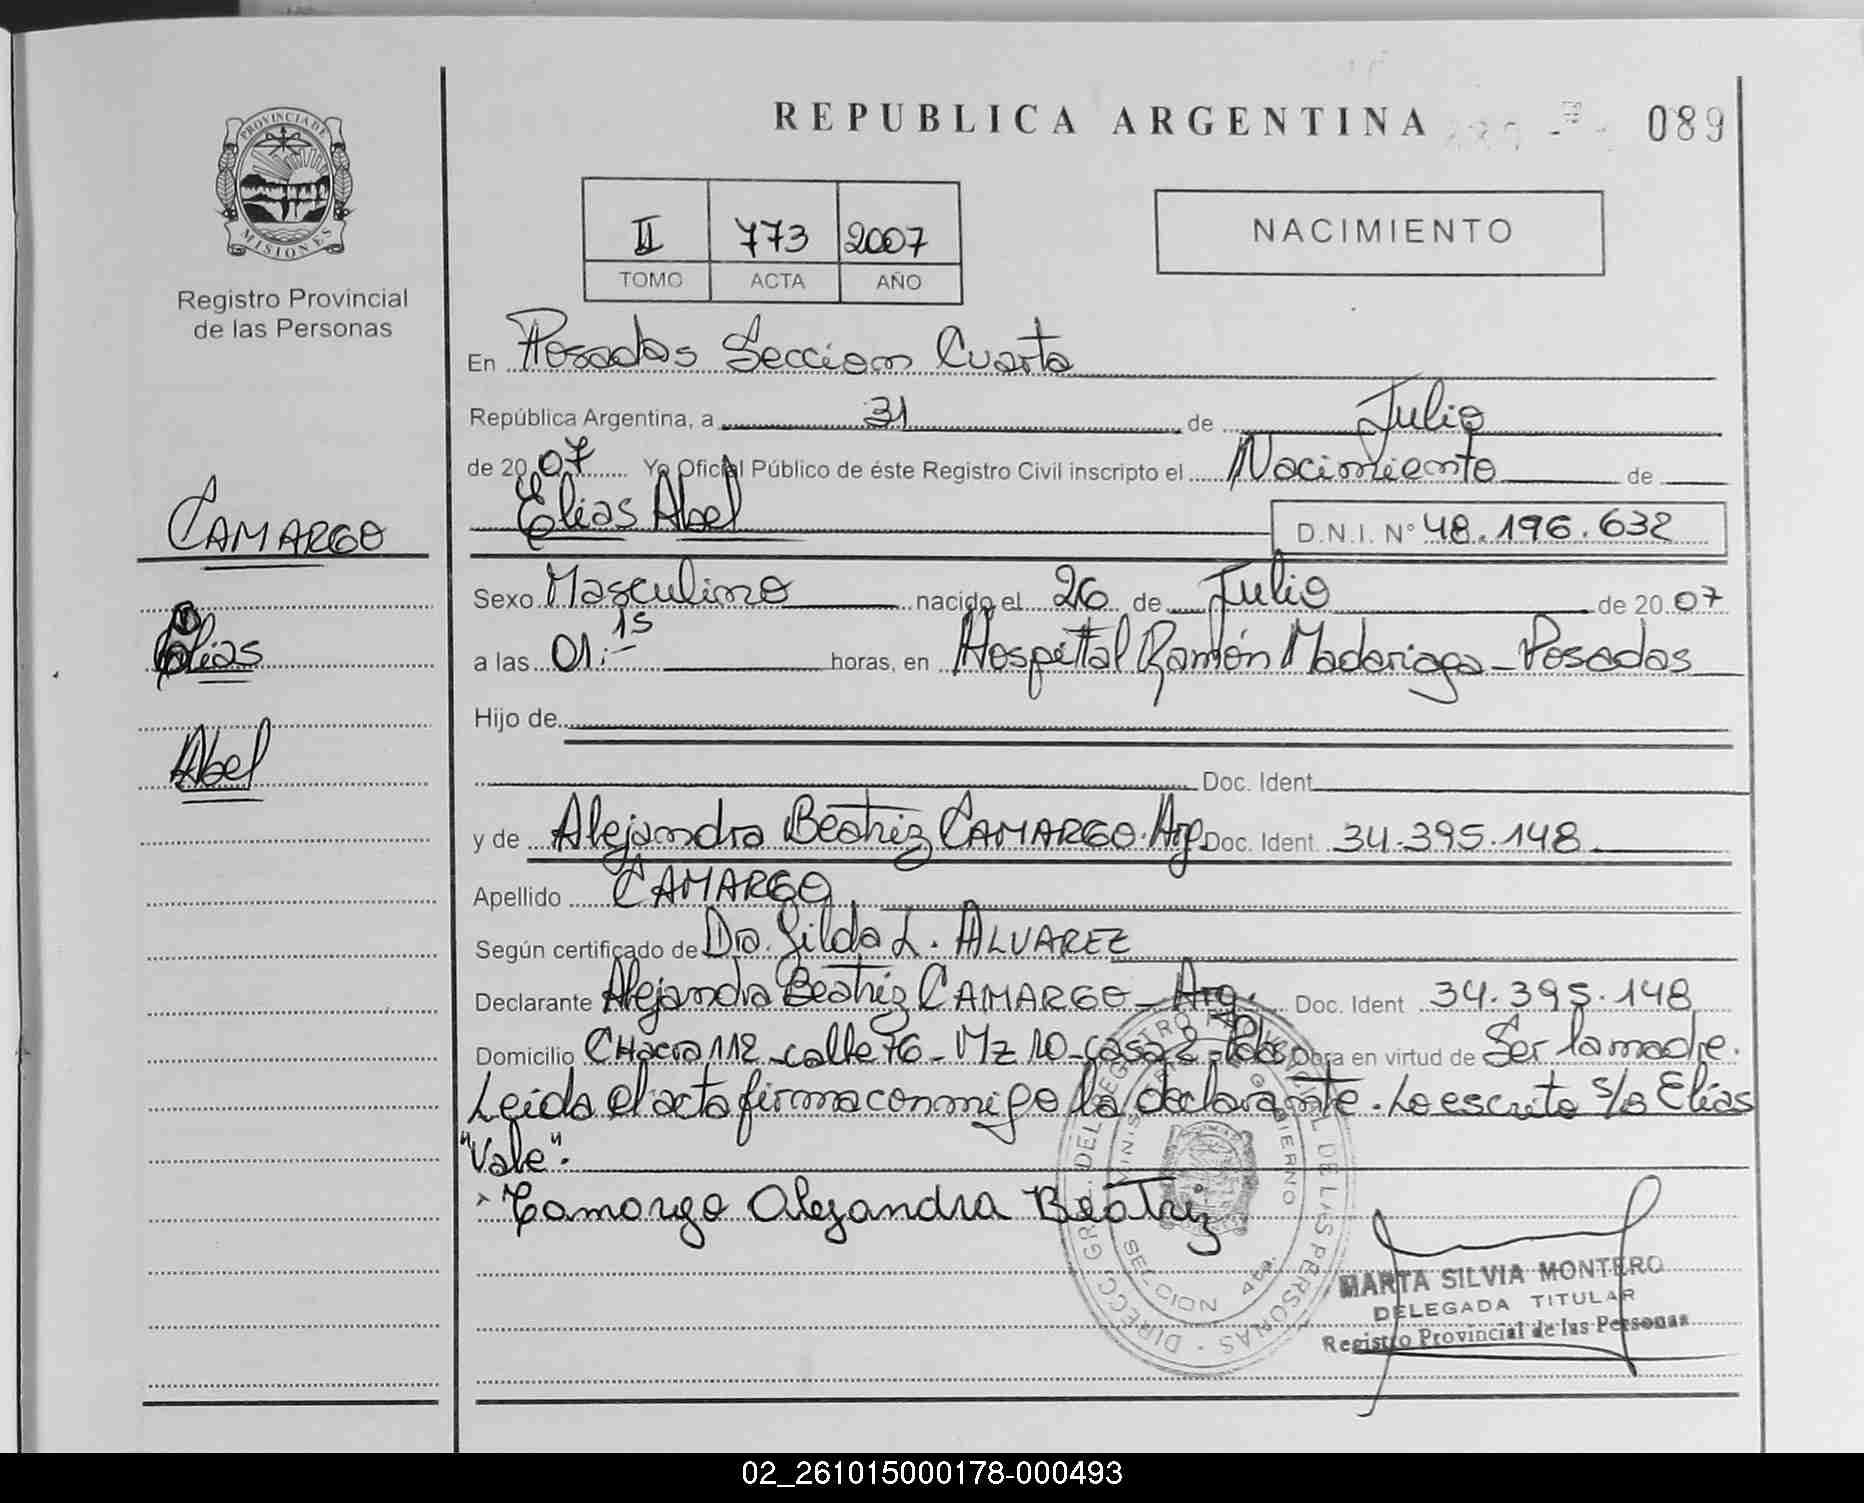 REPUBLICA ARGENTINA
089
PROVINCIA DE
MISIONES
Registro Provincial
de las Personas
II 773 2007
TOMO ACTA AÑO
NACIMIENTO
En Posadas Seccion Cuarta
República Argentina, a 31 de Julio
de 20 07 Yo Oficial Público de éste Registro Civil inscripto el Nacimiento de
Elias Abel D.N.I. Nº 48.196.632
CAMARGO
Elias
Abel
Sexo Masculino nacido el 26 de Julio de 20 07
a las 01:15 horas, en Hospittal Ramón Madariaga - Posadas
Hijo de
Doc. Ident
y de Alejandra Beatriz CAMARGO. Arg. Doc. Ident 34.395.148
Apellido CAMARGO
Según certificado de Dra. Gilda L. ALVAREZ
Declarante Alejandra Beatriz CAMARGO - Arg. Doc. Ident 34.395.148
Domicilio CHacra 112 - calle 76 - Mz 10 - casa 2 - Pdas Obra en virtud de Ser la madre.
Leida el acta firma conmigo la declarante. Lo escrito s/o Elias
"Vale".
Camargo Alejandra Beatriz
DIRECC. GRAL. DEL REGISTRO PROVINCIAL DE LAS PERSONAS
MINISTERIO DE GOBIERNO
SECCION 4ta.
MARTA SILVIA MONTERO
DELEGADA TITULAR
Registro Provincial de las Personas
02_261015000178-000493